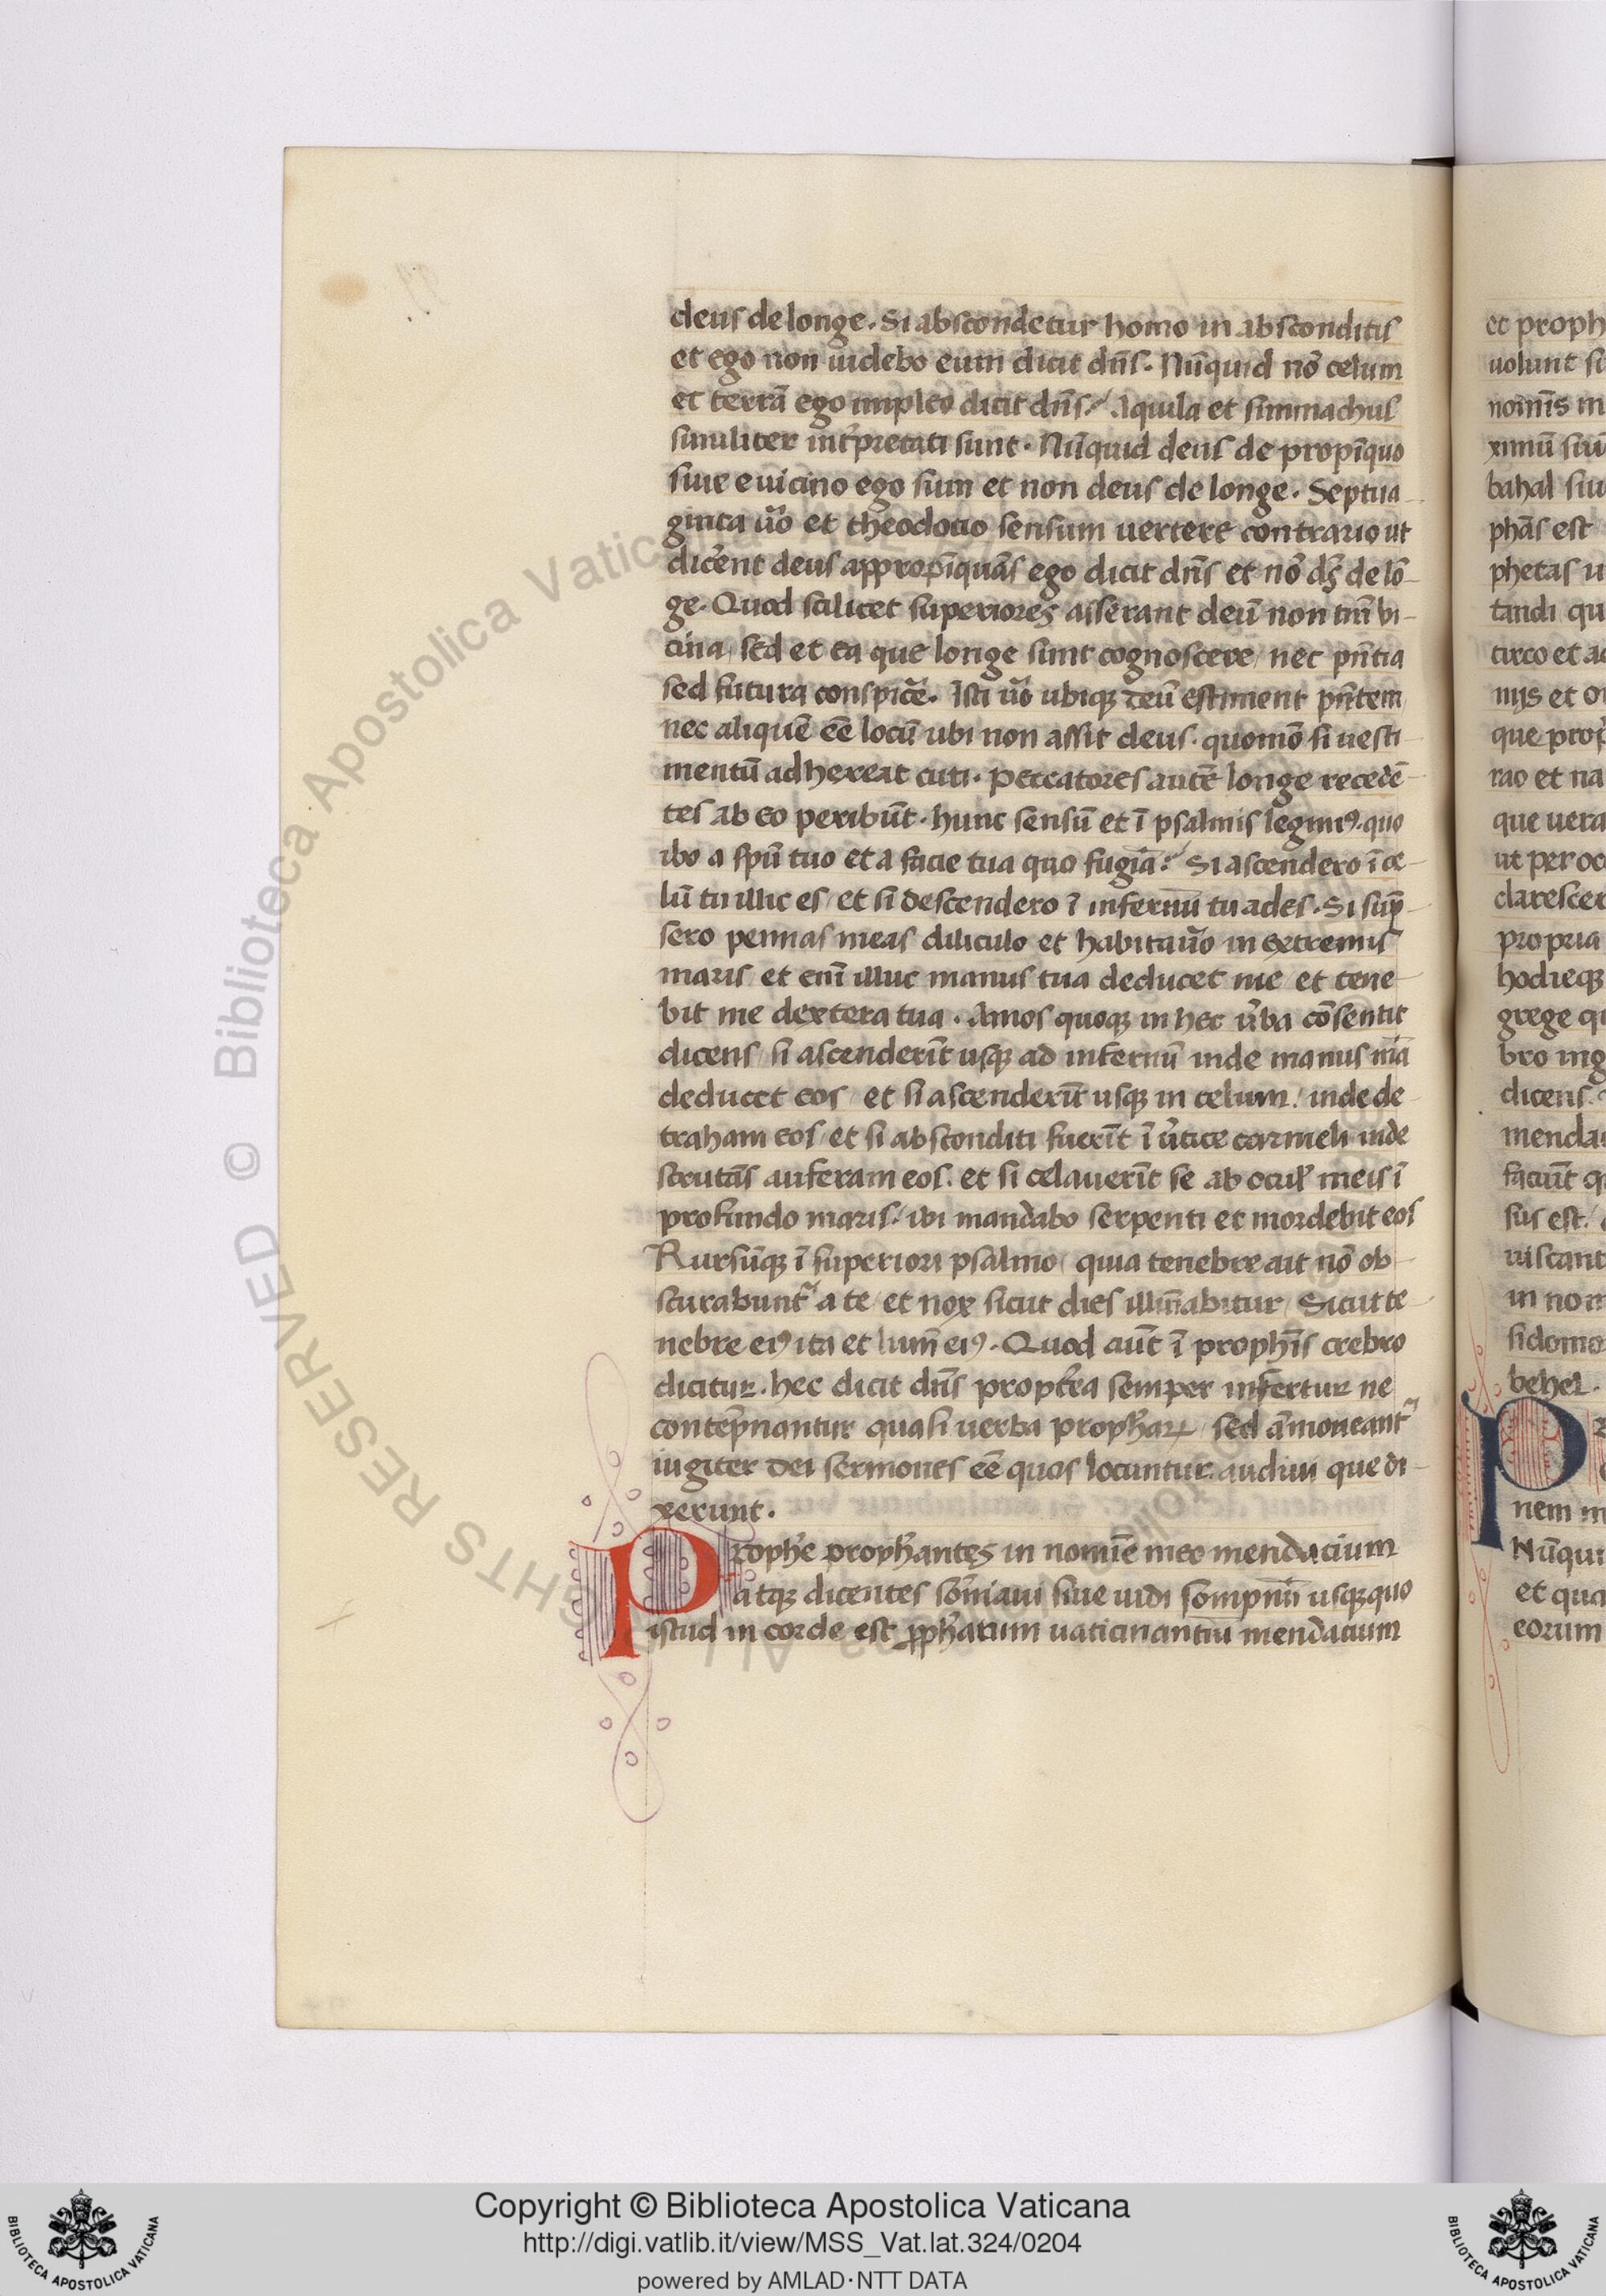 deus de longe. Si abscondetur homo in absconditis
et ego non uidebo eum dicit dn̄s. Nūquid nō celum
et terrā ego impleo dicit dn̄s/ Aquila et simmachus
similiter int̄pretati sunt. Nūquid deus de propīquo
siue e uicino ego sum et non deus de longe. Septua
ginta u̅o et theodotio sensum uertere contrario ut
dic̄ent deus appropīquās ego dicit dn̄s et nō ds̄ de lō
ge. Quod scilicet superiores asserant deū non tm̄ vi
cina, sed et ea que longe sunt cognoscere/ nec pn̄tia
sed futura conspic̄e. Isti u̅o ubiqȝ deū estiment pn̄tem
nec aliquē eē locū ubi non assit deus. quomō si uesti
mentū adhereat cuti. peccatores autē longe recedē
tes ab eo peribūt. hunc sensū et ī psalmis legimꝰ. quo
ibo a spū tuo et a facie tua quo fugiā/ Si ascendero ī ce
lū tu illic es/ et si descendero ī infernū tu ades. Si sūp
sero pennas meas diliculo et habitau̅o in extremis
maris/ et eni̅ illuc manus tua deducet me/ et tene
bit me dextera tua. Amos quoqȝ in hec u̅ba cōsentit
dicens/ si ascenderīt usqȝ ad infernū inde manus mā
deducet eos/ et si ascenderīt usqȝ in celum/ inde de
traham eos/ et si absconditi fuerīt ī u̅tice carmeli inde
scrutās auferam eos. et si celauerīt se ab ocul̕ meis ī
profundo maris/ ibi mandabo serpenti et mordebit eos
Rursūqȝ ī superiori psalmo/ quia tenebre ait nō ob
scurabunt̄ a te/ et nox sicut dies illūnabitur/ Sicut te
nebre eiꝰ ita et lum̄ eiꝰ. Quod aūt ī proph̄is crebro
dicitur. hec dicit dn̄s propt̄ea semper infertur ne
contēpnantur quasi uerba prophaꝝ/ sed āmoneant̄
iugiter dei sermones eē quos locuntur. audiui que di
xerunt.
Proph̄e proph̄antes in nomīe meo mendacium
atqȝ dicentes sōniaui siue uidi sompniū usqȝquo
istud in corde est ꝓph̄atum uaticinantiū mendacium
et proph
uolunt
nomīs m
bahal siu
phās est
phetas u
tandi qu
circo et
nijs et
que
rao et na
que uera
ut per
propria
hodieqȝ
grege
bro
dicens
menda
faciūt
sus est
in nom
behel.
P
nem
Nūqui
et qua
eorum
© Biblioteca Apostolica Vaticana
ALL RIGHTS RESERVED
Copyright © Biblioteca Apostolica Vaticana
http://digi.vatlib.it/view/MSS_Vat.lat.324/0204
powered by AMLAD·NTT DATA
BIBLIOTECA APOSTOLICA VATICANA
BIBLIOTECA APOSTOLICA VATICANA